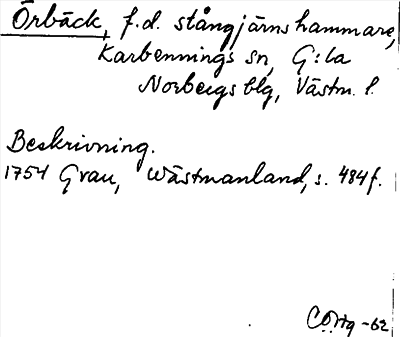 Örbäck, f.d. stångjärnshammare,
Karbennings sn, G:la
Norbergs blg, Västm. l.
Beskrivning.
1754 Grau, Wästmanland, s. 484 f.
-62